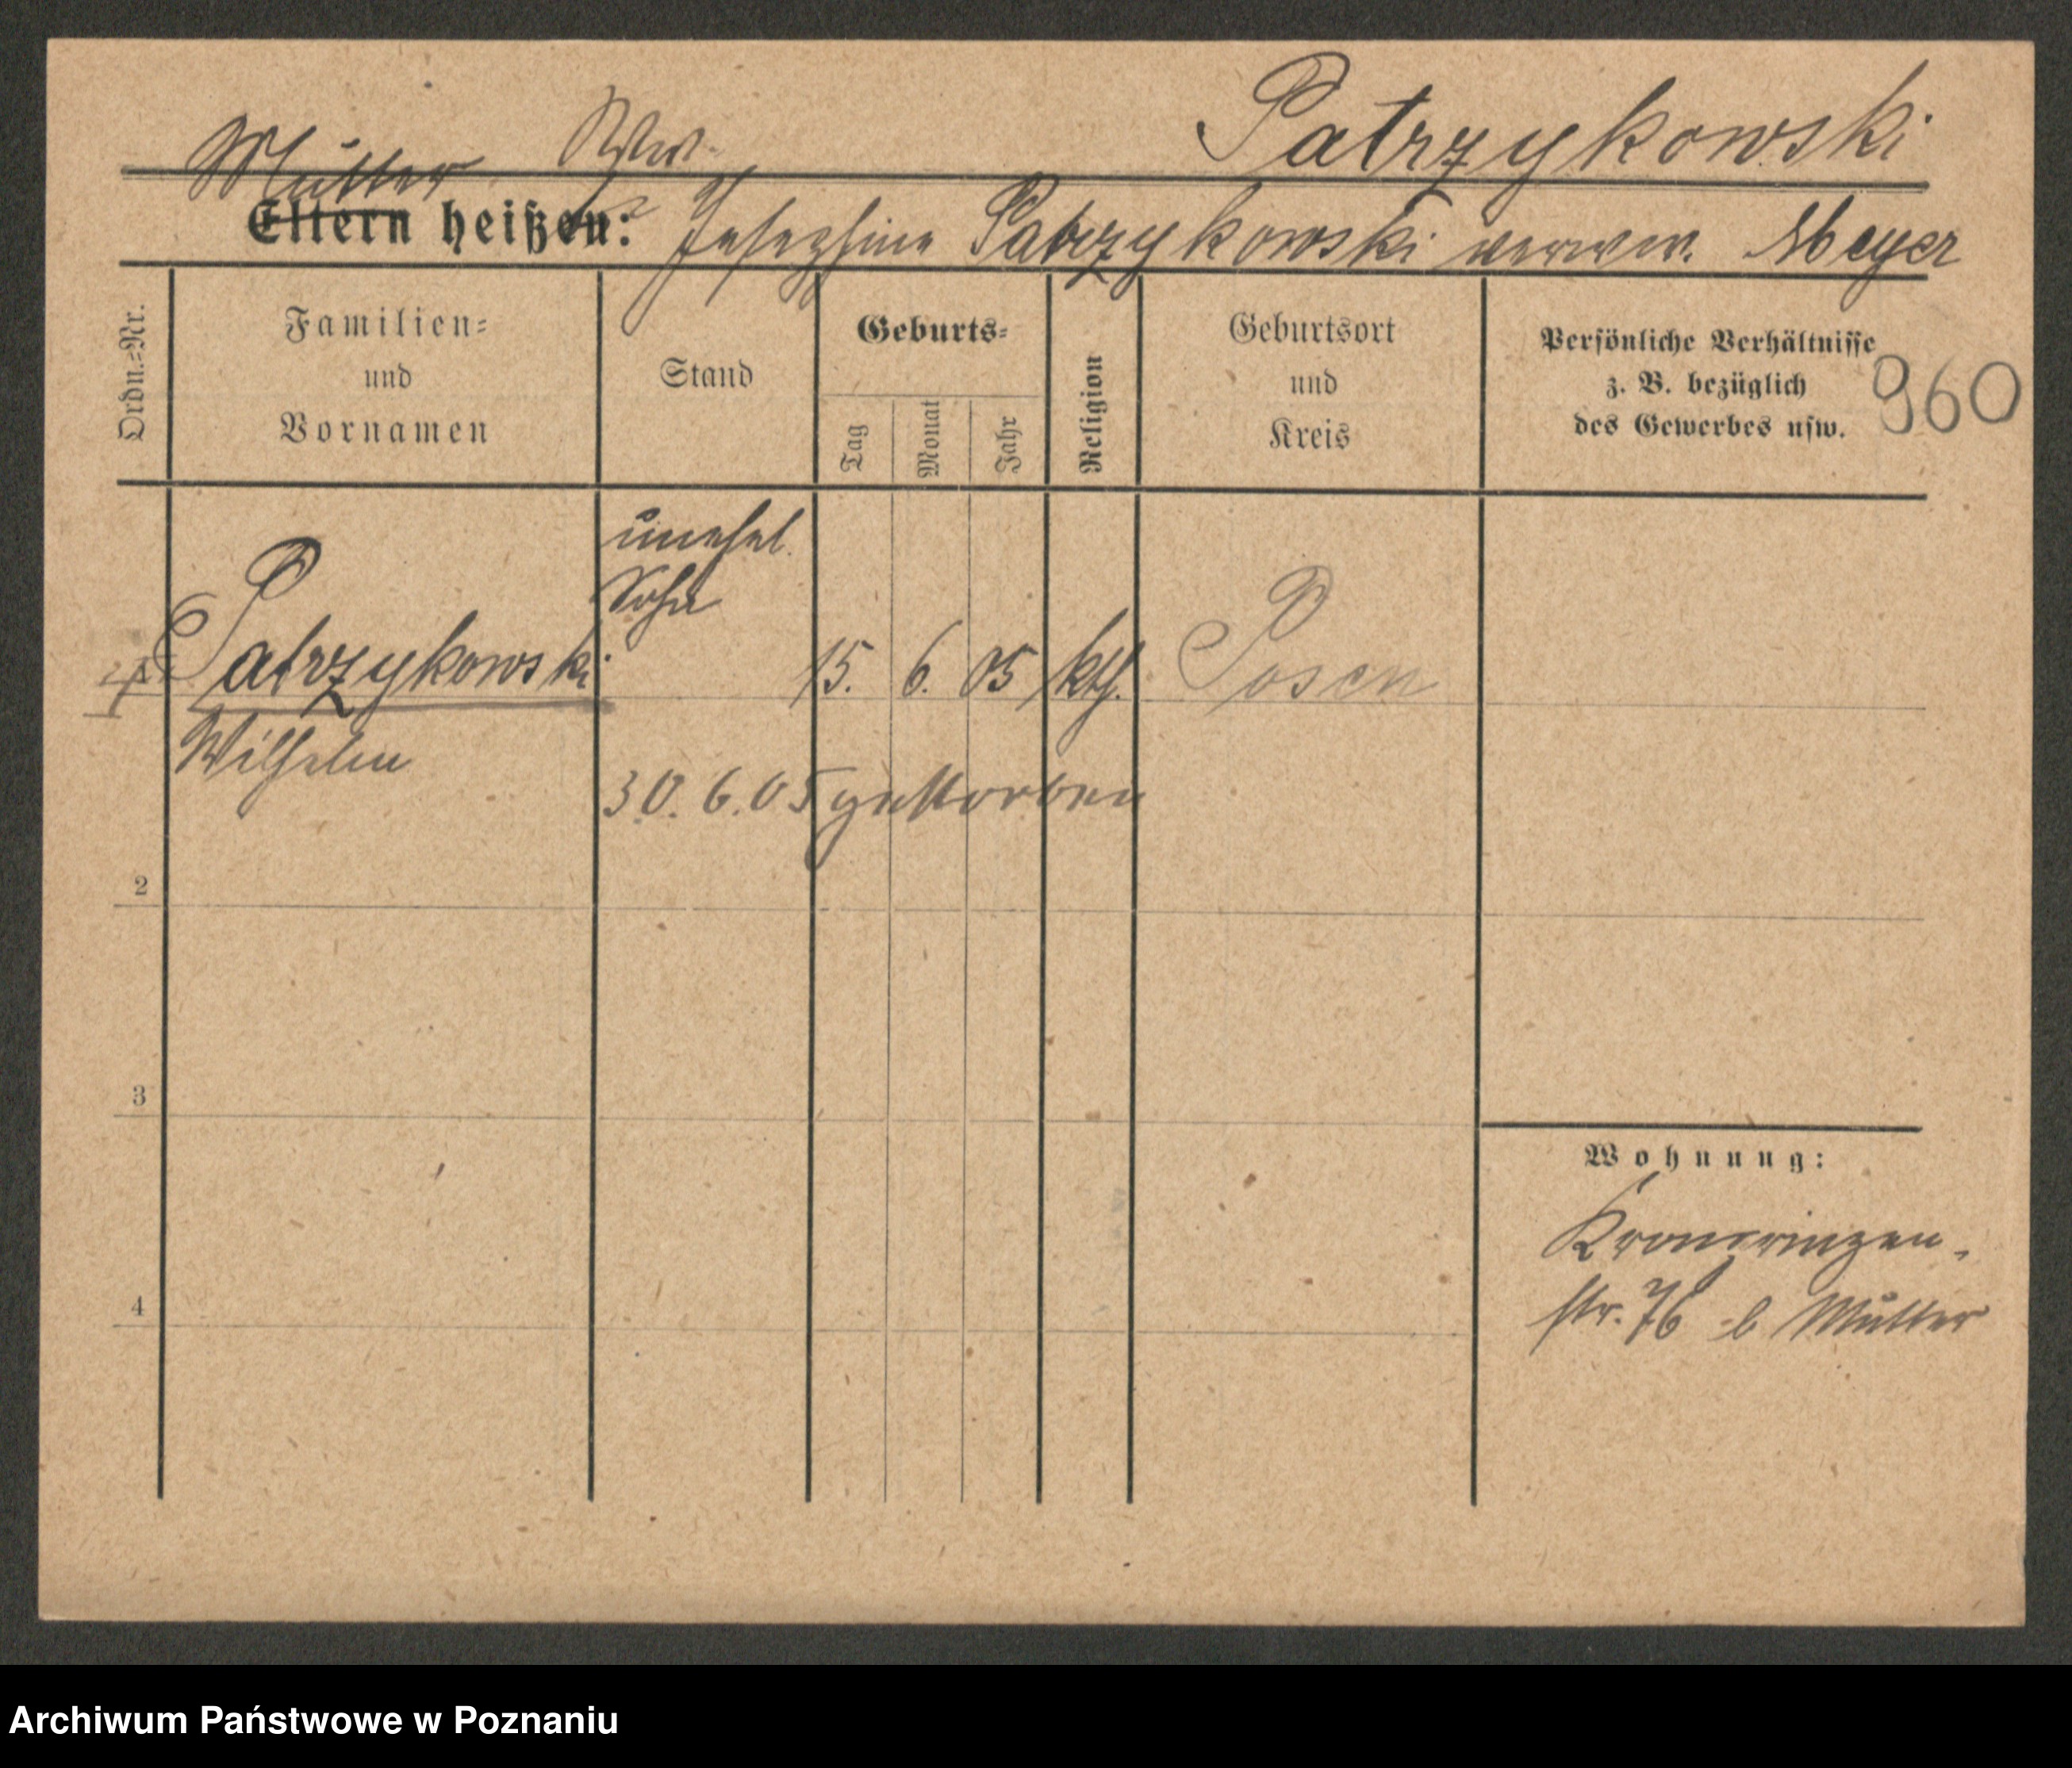 Patrzykowski
Mutter Ww.
Eltern heißen: Josephine Patrzykowski verww. Meyer
Ordn.=Nr.
Familien=
und
Vornamen
Stand
Geburts=
Tag
Monat
Jahr
Religion
Geburtsort
und
Kreis
Persönliche Verhältnisse
z. B. bezüglich
des Gewerbes usw.
960
unehel.
Sohn
Patrzykowski 15. 6. 05 kth. Posen
Wilhelm
30. 6. 05 gestorben
2
3
4
Wohnung:
Kronprinzen-
str. 76 b Mutter
Archiwum Państwowe w Poznaniu